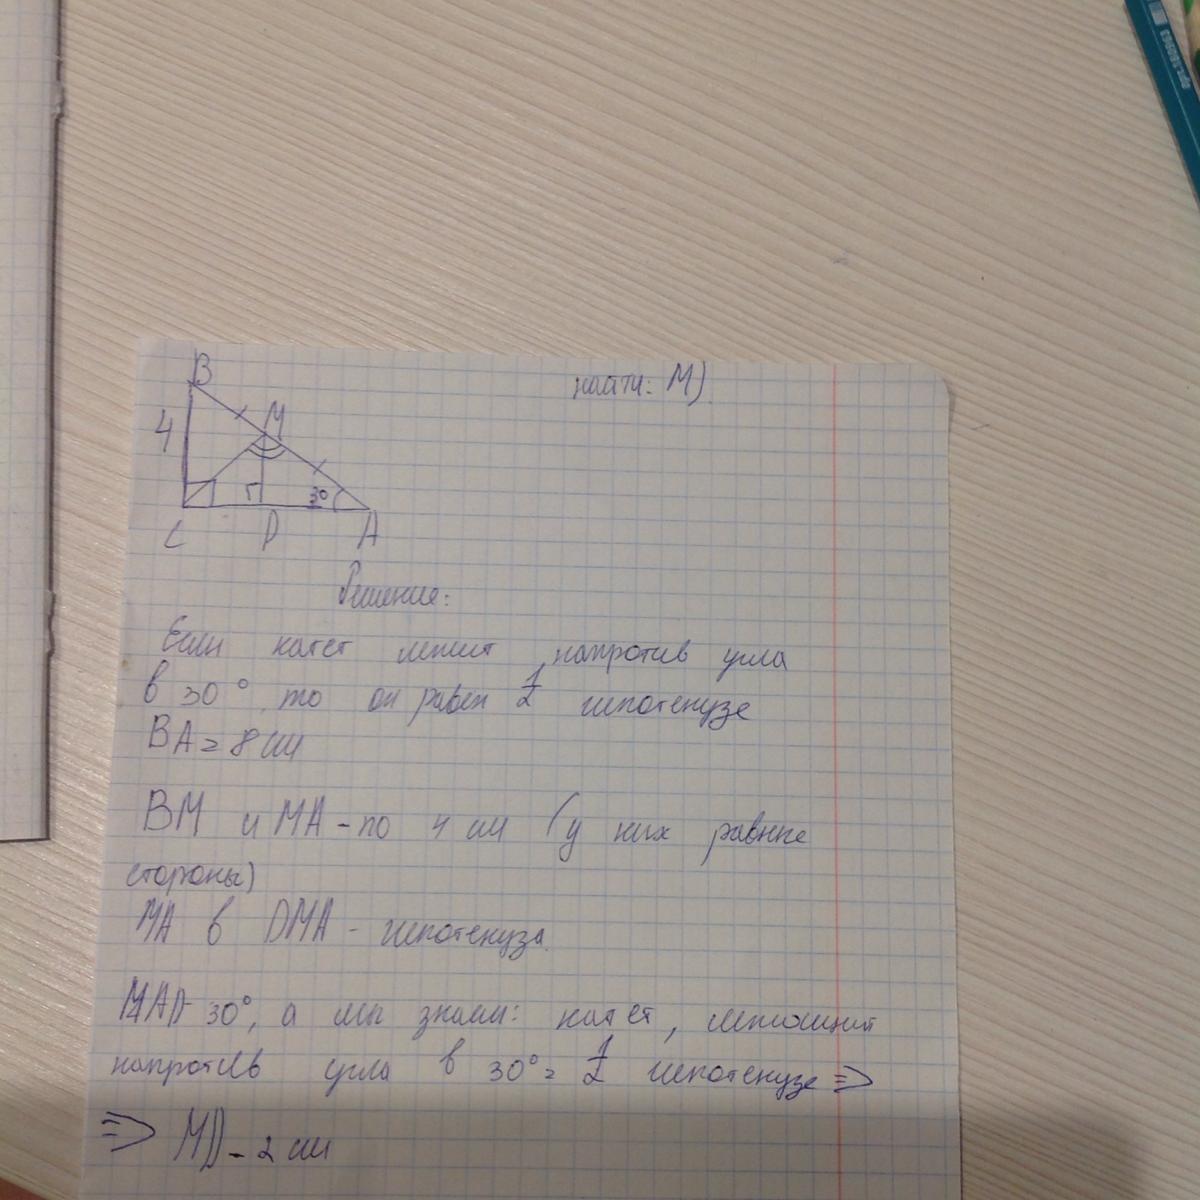 найти: MD
B
4
M
30
C
D
A
Решение:
Если катет лежит напротив угла
в 30°, то он равен 1/2 гипотенузе
BA = 8 см
BM и MA - по 4 см (у них равные
стороны)
MA в DMA - гипотенуза.
MAD 30°, а мы знаем: катет, лежащий
напротив угла в 30° = 1/2 гипотенузе ⇒
⇒ MD - 2 см